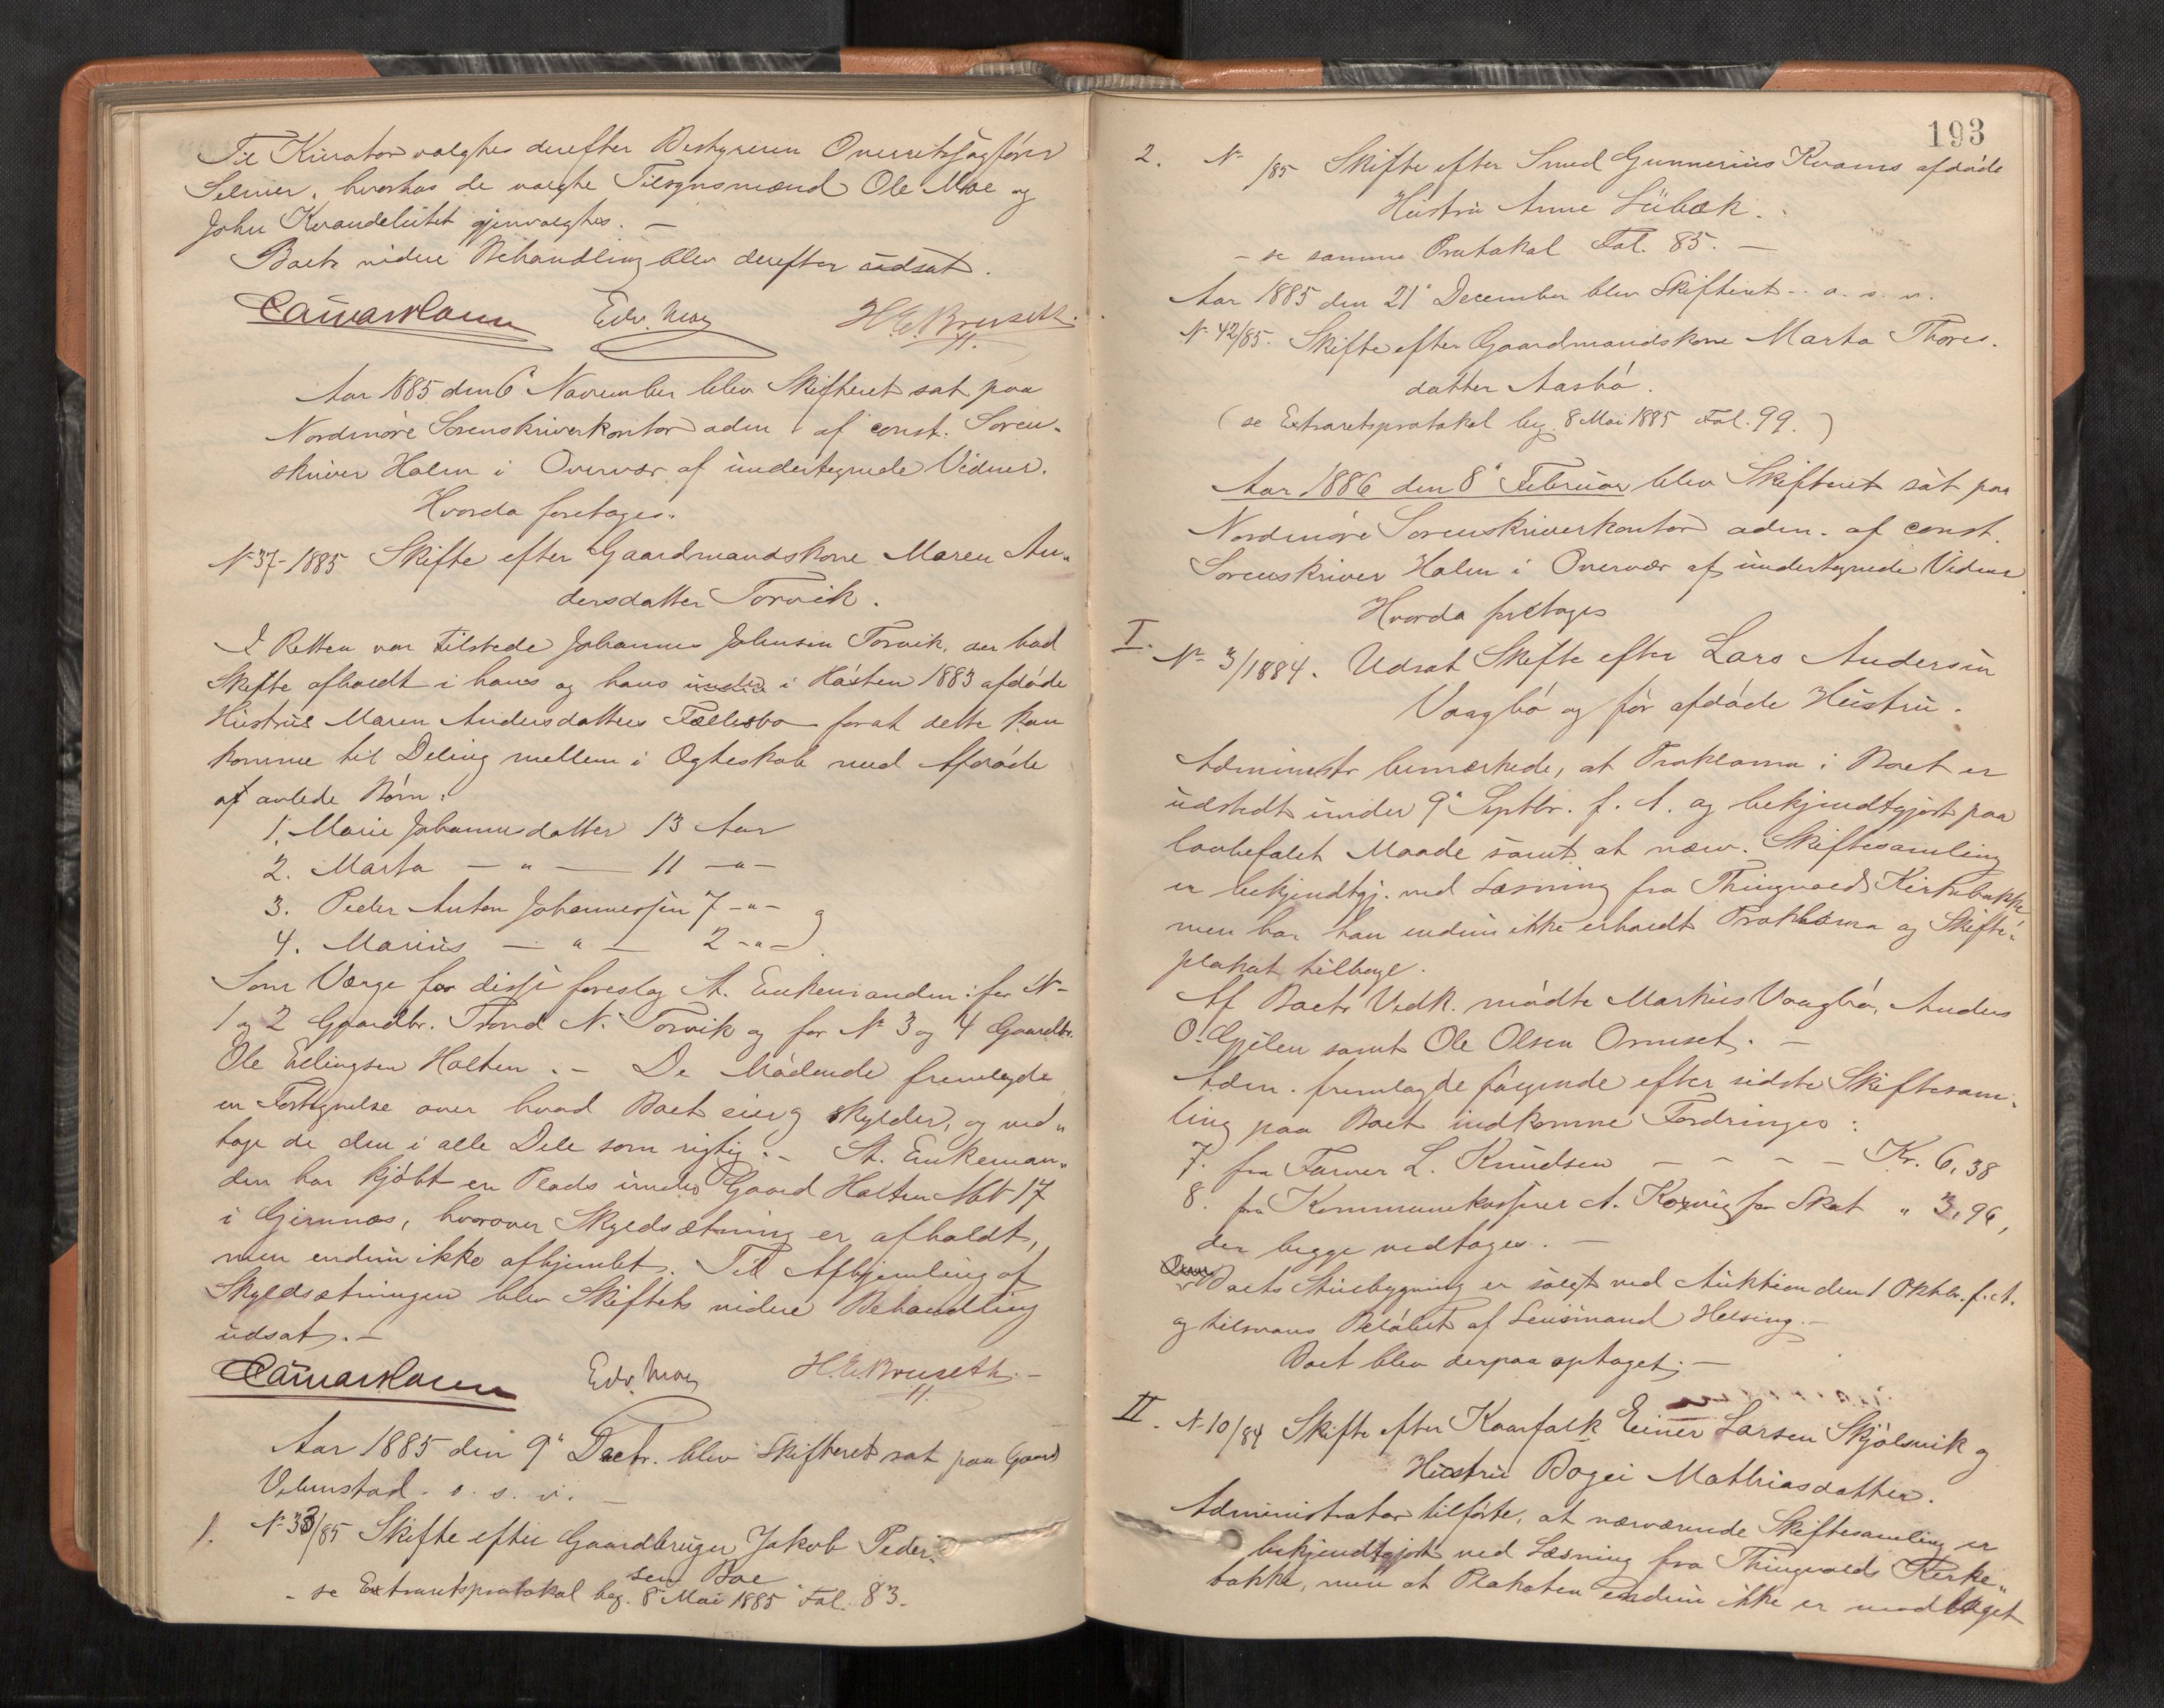 Til Kurator valgtes derefter Bestyreren Overretssagfører
Selmer, hvorhos de valgte Tilsynsmænd Ole Moe og
John Kvandelutet gjenvalgtes. —
Boets videre Behandling blev derefter udsat.
Edv. Moe H. E. Bruseth.
Aar 1885 den 6" November blev Skifteret sat paa
Nordmøre Sorenskriverkontor adm. af const. Soren-
skriver Holm i Overvær af undertegnede Vidner.
Hvorda foretoges.
No 37-1885 Skifte efter Gaardmandskone Maren An-
dersdatter Torvik.
I Retten var tilstede Johannes Johnsen Torvik, der bad
Skifte afholdt i hans og hans i Høsten 1883 afdøde
Hustrus Maren Andersdatters Fællesbo forat dette kan
komme til Deling mellem i Ægteskab med Afdøde
af avlede Børn:
1. Marie Johannesdatter 13 Aar
2. Marta — " — 11 — " —
3. Peder Anton Johannessen 7 - " - og
4. Marius — " — 2 - " -.
Som Værge for disse foreslog A. Enkemanden: for No
1 og 2 Gaardbr. Trond N. Torvik og for No 3 og 4 Gaardbr.
Ole Ellingsen Holten. — De Mødende fremlagde
en Fortegnelse over hvad Boet eier og skylder, og ved-
toge de den i alle Dele som rigtig. — St. Enkeman-
den har kjøbt en Plads under Gaard Holten Mt 17
i Gimnæs, hvorover Skyldsætning er afholdt,
men endnu ikke afhjemlet. Til Afhjemling af
Skyldsætningen blev Skiftets videre Behandling
udsat. —
Edv. Moe H. E. Bruseth. —
Aar 1885 den 9" Decbr. blev Skifteret sat paa Gaard
o. s. v. —
1. No 33/85 Skifte efter Gaardbruger Jakob Peder-
sen Boe
- se Extraretsprotokol beg. 8" Mai 1885 Fol. 83.
193
2. No /85 Skifte efter Smed Gunnerius Kvams afdøde
Hustru Anne Lübæk.
- se samme Protokol Fol. 85. —
Aar 1885 den 21" December blev Skifteret - o. s. v.
No 42/85. Skifte efter Gaardmandskone Marta Thores-
datter Aasbø.
(se Extraretsprotokol beg. 8 Mai 1885 Fol. 99.)
Aar 1886 den 8" Februar blev Skifteret sat paa
Nordmøre Sorenskriverkontor adm. af const.
Sorenskriver Holm i Overvær af undertegnede Vidner
Hvorda foretoges
I. No 3/1884. Udsat Skifte efter Lars Andersen
Vaagbø og før afdøde Hustru.
Administr. bemærkede, at Proklama i Boet er
udstedt under 9" Septbr. f. A. og bekjendtgjort paa
lovbefalet Maade samt at nærv. Skiftesamling
er bekjendtgj. ved Læsning fra Thingvold Kirkebakke,
men har han endnu ikke erholdt Proklama og Skifte-
plakat tilbage.
Af Boets Vedk. mødte Markus Vaagbø, Anders
O. Gjølen samt Ole Olsen Ormset. —
Adm. fremlagde følgende efter sidste Skiftesam-
ling paa Boet indkomne Fordringer:
7. fra Farver L. Knudsen — — — — Kr. 6,38
8. fra Kommunekasserer A. Koxvig for Skat " 3,96,
der begge vedtoges. —
Boets Stuebygning er solgt ved Auktion den 1 Oktbr. f. A.
og tilsvares Beløbet af Lensmand Helsing. —
Boet blev derpaa optaget. —
II. No 10/84 Skifte efter Kaarfolk Einer Larsen Skjølsvik og
Hustru Dagei Mathiasdatter.
Administrator tilførte, at nærværende Skiftesamling er
bekjendtgjort ved Læsning fra Thingvolds Kirke-
bakke, men at Plakaten endnu ikke er modtaget